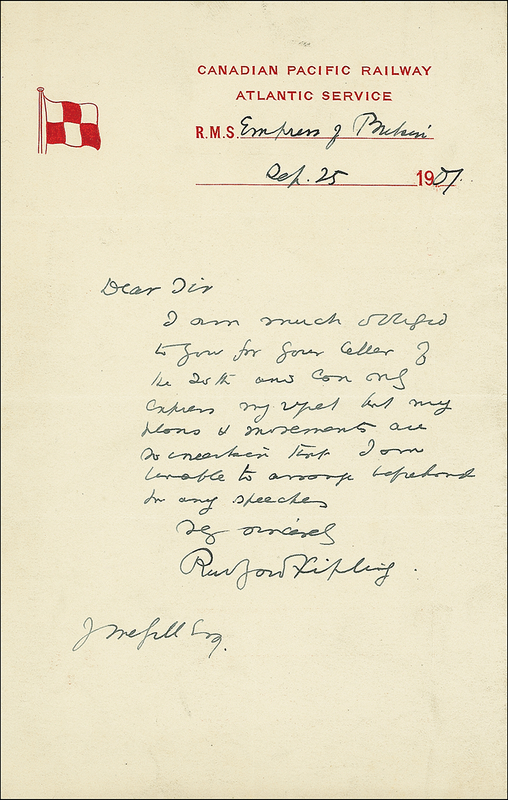 CANADIAN PACIFIC RAILWAY
ATLANTIC SERVICE
R.M.S. Empress of Britain
Sep. 25 1907.
Dear Sir
I am much obliged
to you for your letter of
the 20th and can only
express my regret that my
plans & movements are
so uncertain that I am
unable to arrange beforehand
for any speeches
Very sincerely
Rudyard Kipling.
J Esq.